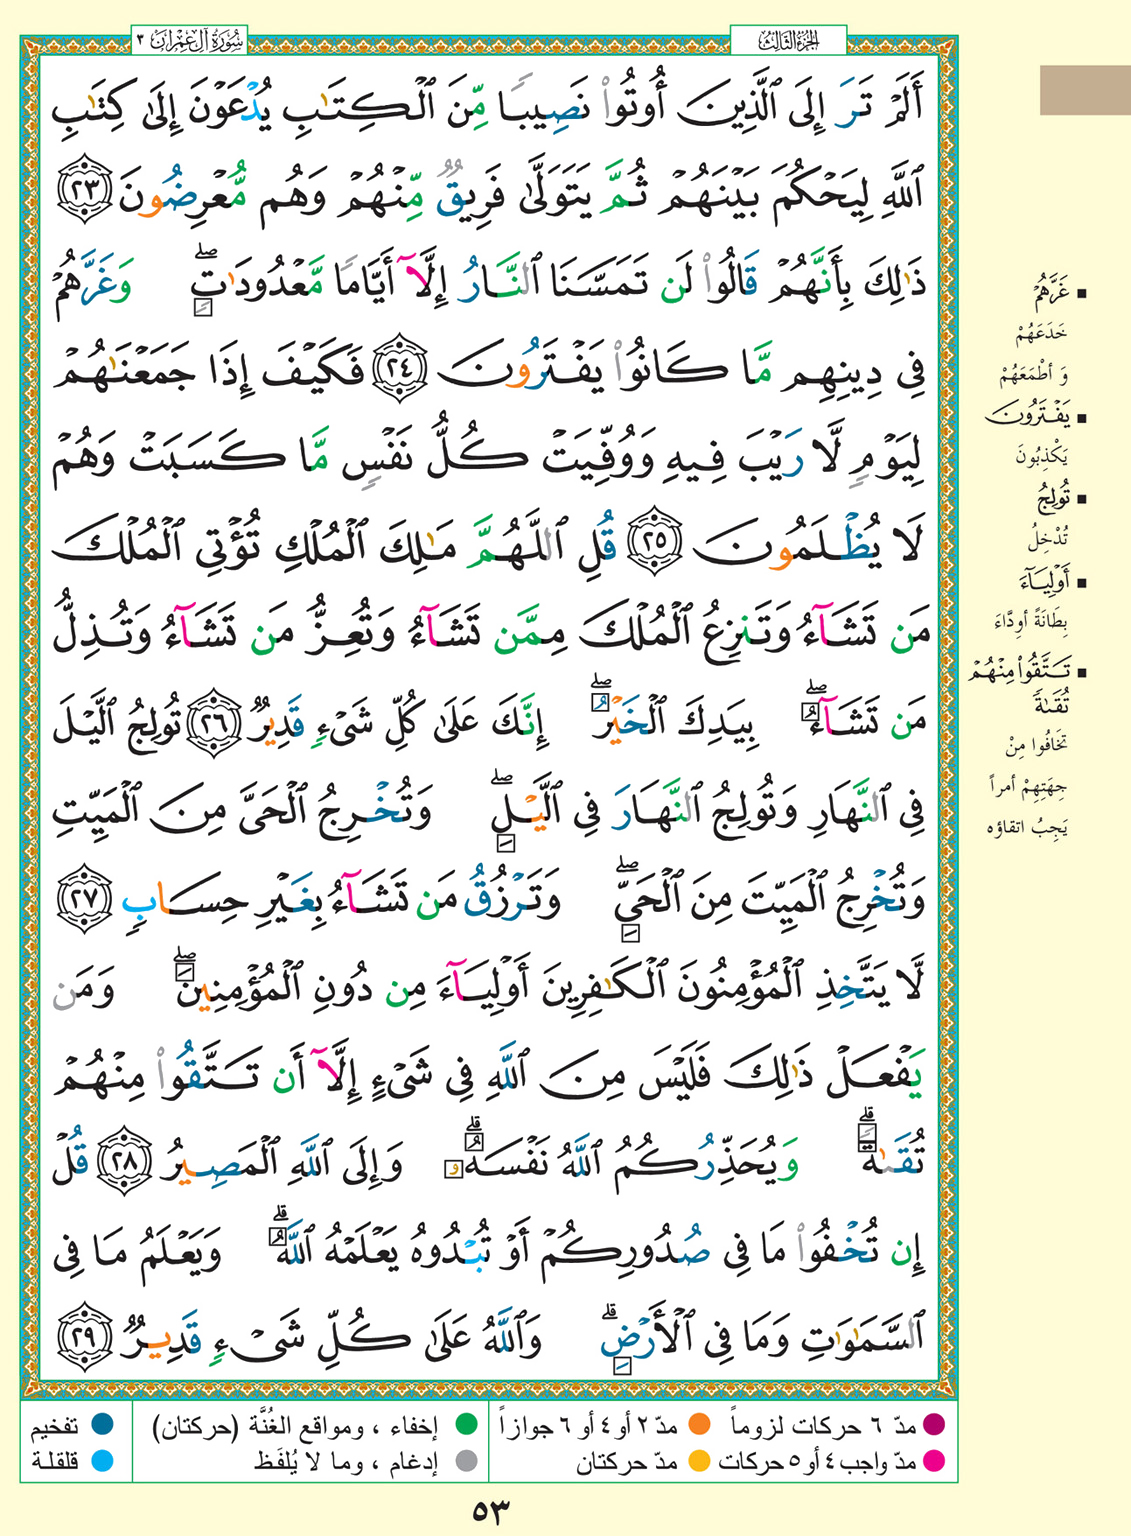 الجزء الثالث
سورة آل عمران ٣
أَلَمْ تَرَ إِلَى ٱلَّذِينَ أُوتُوا۟ نَصِيبًا مِّنَ ٱلْكِتَٰبِ يُدْعَوْنَ إِلَىٰ كِتَٰبِ
ٱللَّهِ لِيَحْكُمَ بَيْنَهُمْ ثُمَّ يَتَوَلَّىٰ فَرِيقٌ مِّنْهُمْ وَهُم مُّعْرِضُونَ ٢٣
ذَٰلِكَ بِأَنَّهُمْ قَالُوا۟ لَن تَمَسَّنَا ٱلنَّارُ إِلَّآ أَيَّامًا مَّعْدُودَٰتٍ ۖ وَغَرَّهُمْ
فِى دِينِهِم مَّا كَانُوا۟ يَفْتَرُونَ ٢٤ فَكَيْفَ إِذَا جَمَعْنَٰهُمْ
لِيَوْمٍ لَّا رَيْبَ فِيهِ وَوُفِّيَتْ كُلُّ نَفْسٍ مَّا كَسَبَتْ وَهُمْ
لَا يُظْلَمُونَ ٢٥ قُلِ ٱللَّهُمَّ مَٰلِكَ ٱلْمُلْكِ تُؤْتِى ٱلْمُلْكَ
مَن تَشَآءُ وَتَنزِعُ ٱلْمُلْكَ مِمَّن تَشَآءُ وَتُعِزُّ مَن تَشَآءُ وَتُذِلُّ
مَن تَشَآءُ ۖ بِيَدِكَ ٱلْخَيْرُ ۖ إِنَّكَ عَلَىٰ كُلِّ شَىْءٍ قَدِيرٌ ٢٦ تُولِجُ ٱلَّيْلَ
فِى ٱلنَّهَارِ وَتُولِجُ ٱلنَّهَارَ فِى ٱلَّيْلِ ۖ وَتُخْرِجُ ٱلْحَىَّ مِنَ ٱلْمَيِّتِ
وَتُخْرِجُ ٱلْمَيِّتَ مِنَ ٱلْحَىِّ ۖ وَتَرْزُقُ مَن تَشَآءُ بِغَيْرِ حِسَابٍ ٢٧
لَّا يَتَّخِذِ ٱلْمُؤْمِنُونَ ٱلْكَٰفِرِينَ أَوْلِيَآءَ مِن دُونِ ٱلْمُؤْمِنِينَ ۖ وَمَن
يَفْعَلْ ذَٰلِكَ فَلَيْسَ مِنَ ٱللَّهِ فِى شَىْءٍ إِلَّآ أَن تَتَّقُوا۟ مِنْهُمْ
تُقَىٰةً ۗ وَيُحَذِّرُكُمُ ٱللَّهُ نَفْسَهُۥ ۗ وَإِلَى ٱللَّهِ ٱلْمَصِيرُ ٢٨ قُلْ
إِن تُخْفُوا۟ مَا فِى صُدُورِكُمْ أَوْ تُبْدُوهُ يَعْلَمْهُ ٱللَّهُ ۗ وَيَعْلَمُ مَا فِى
ٱلسَّمَٰوَٰتِ وَمَا فِى ٱلْأَرْضِ ۗ وَٱللَّهُ عَلَىٰ كُلِّ شَىْءٍ قَدِيرٌ ٢٩
▪ غَرَّهُمْ
خَدَعَهُمْ
وَ أَطْمَعَهُمْ
▪ يَفْتَرُونَ
يَكْذِبُونَ
▪ تُولِجُ
تُدْخِلُ
▪ أَوْلِيَآءَ
بِطَانَةً أوِدَّاءَ
▪ تَتَّقُوا۟ مِنْهُمْ
تُقَىٰةً
تَخَافُوا مِنْ
جِهَتِهِمْ أمراً
يَجِبُ اتقاؤه
مدّ ٦ حركات لزوماً مدّ ٢ أو ٤ أو ٦ جوازاً إخفاء ، ومواقع الغُنَّة (حركتان) تفخيم
مدّ واجب ٤ أو ٥ حركات مدّ حركتان إدغام ، وما لا يُلفَظ قلقلة
٥٣